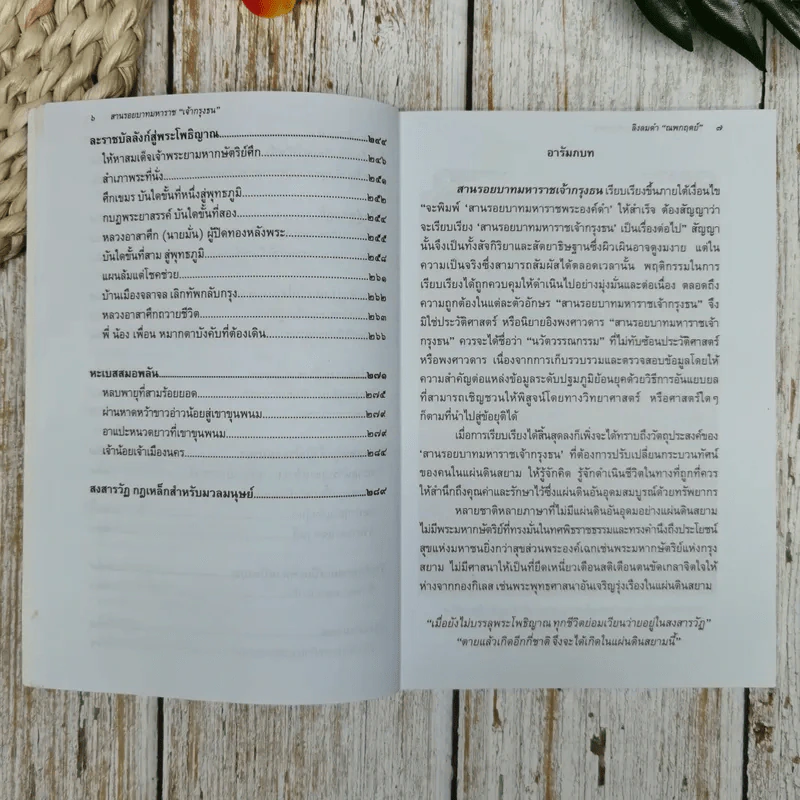 ๖ สานรอยบาทมหาราช "เจ้ากรุงธน"
ละราชบัลลังก์สู่พระโพธิญาณ................๒๔๔
ให้หาสมเด็จเจ้าพระยามหากษัตริย์ศึก................๒๔๖
สำเภาพระที่นั่ง................๒๕๑
ศึกเขมร บันไดขั้นที่หนึ่งสู่พุทธภูมิ................๒๕๒
กบฏพระยาสรรค์ บันไดขั้นที่สอง................๒๕๔
หลวงอาสาศึก (นายมั่น) ผู้ปิดทองหลังพระ................๒๕๕
บันไดขั้นที่สาม สู่พุทธภูมิ................๒๕๘
แผนล้มแต่โชคช่วย................๒๖๑
บ้านเมืองจลาจล เลิกทัพกลับกรุง................๒๖๒
หลวงอาสาศึกถวายชีวิต................๒๖๓
พี่ น้อง เพื่อน หมากตาบังคับที่ต้องเดิน................๒๖๖
ทะเบสสมอพลัน................๒๗๑
หลบพายุที่สามร้อยยอด................๒๗๕
ผ่านหาดหว้าขาวอ่าวน้อยสู่เขาขุนพนม................๒๗๙
อาแปะหนวดยาวที่เขาขุนพนม................๒๗๙
เจ้าน้อยเจ้าเมืองนคร................๒๘๔
สงสารวัฏ กฎเหล็กสำหรับมวลมนุษย์................๒๘๙
ลิงลมดำ "ณพกฤตย์" ๗
อารัมภบท
สานรอยบาทมหาราชเจ้ากรุงธน เรียบเรียงขึ้นภายใต้เงื่อนไข
"จะพิมพ์ 'สานรอยบาทมหาราชพระองค์ดำ' ให้สำเร็จ ต้องสัญญาว่า
จะเรียบเรียง 'สานรอยบาทมหาราชเจ้ากรุงธน' เป็นเรื่องต่อไป" สัญญา
นั้นจึงเป็นทั้งสัจกิริยาและสัตยาธิษฐานซึ่งผิวเผินอาจดูงมงาย แต่ใน
ความเป็นจริงซึ่งสามารถสัมผัสได้ตลอดเวลานั้น พฤติกรรมในการ
เรียบเรียงได้ถูกควบคุมให้ดำเนินไปอย่างมุ่งมั่นและต่อเนื่อง ตลอดถึง
ความถูกต้องในแต่ละตัวอักษร "สานรอยบาทมหาราชเจ้ากรุงธน" จึง
มิใช่ประวัติศาสตร์ หรือนิยายอิงพงศาวดาร "สานรอยบาทมหาราชเจ้า
กรุงธน" ควรจะได้ชื่อว่า "นวัตวรรณกรรม" ที่ไม่ทับซ้อนประวัติศาสตร์
หรือพงศาวดาร เนื่องจากการเก็บรวบรวมและตรวจสอบข้อมูลโดยให้
ความสำคัญต่อแหล่งข้อมูลระดับปฐมภูมิย้อนยุคด้วยวิธีการอันแยบยล
ที่สามารถเชิญชวนให้พิสูจน์โดยทางวิทยาศาสตร์ หรือศาสตร์ใดๆ
ก็ตามที่นำไปสู่ข้อยุติได้
เมื่อการเรียบเรียงได้สิ้นสุดลงก็เพิ่งจะได้ทราบถึงวัตถุประสงค์ของ
'สานรอยบาทมหาราชเจ้ากรุงธน' ที่ต้องการปรับเปลี่ยนกระบวนทัศน์
ของคนในแผ่นดินสยาม ให้รู้จักคิด รู้จักดำเนินชีวิตในทางที่ถูกที่ควร
ให้สำนึกถึงคุณค่าและรักษาไว้ซึ่งแผ่นดินอันอุดมสมบูรณ์ด้วยทรัพยากร
หลายชาติหลายภาษาที่ไม่มีแผ่นดินอันอุดมอย่างแผ่นดินสยาม
ไม่มีพระมหากษัตริย์ที่ทรงมั่นในทศพิธราชธรรมและทรงคำนึงถึงประโยชน์
สุขแห่งมหาชนยิ่งกว่าสุขส่วนพระองค์เฉกเช่นพระมหากษัตริย์แห่งกรุง
สยาม ไม่มีศาสนาให้เป็นที่ยึดเหนี่ยวเตือนสติเตือนตนขัดเกลาจิตใจให้
ห่างจากกองกิเลส เช่นพระพุทธศาสนาอันเจริญรุ่งเรืองในแผ่นดินสยาม
"เมื่อยังไม่บรรลุพระโพธิญาณ ทุกชีวิตย่อมเวียนว่ายอยู่ในสงสารวัฏ"
"ตายแล้วเกิดอีกกี่ชาติ จึงจะได้เกิดในแผ่นดินสยามนี้"